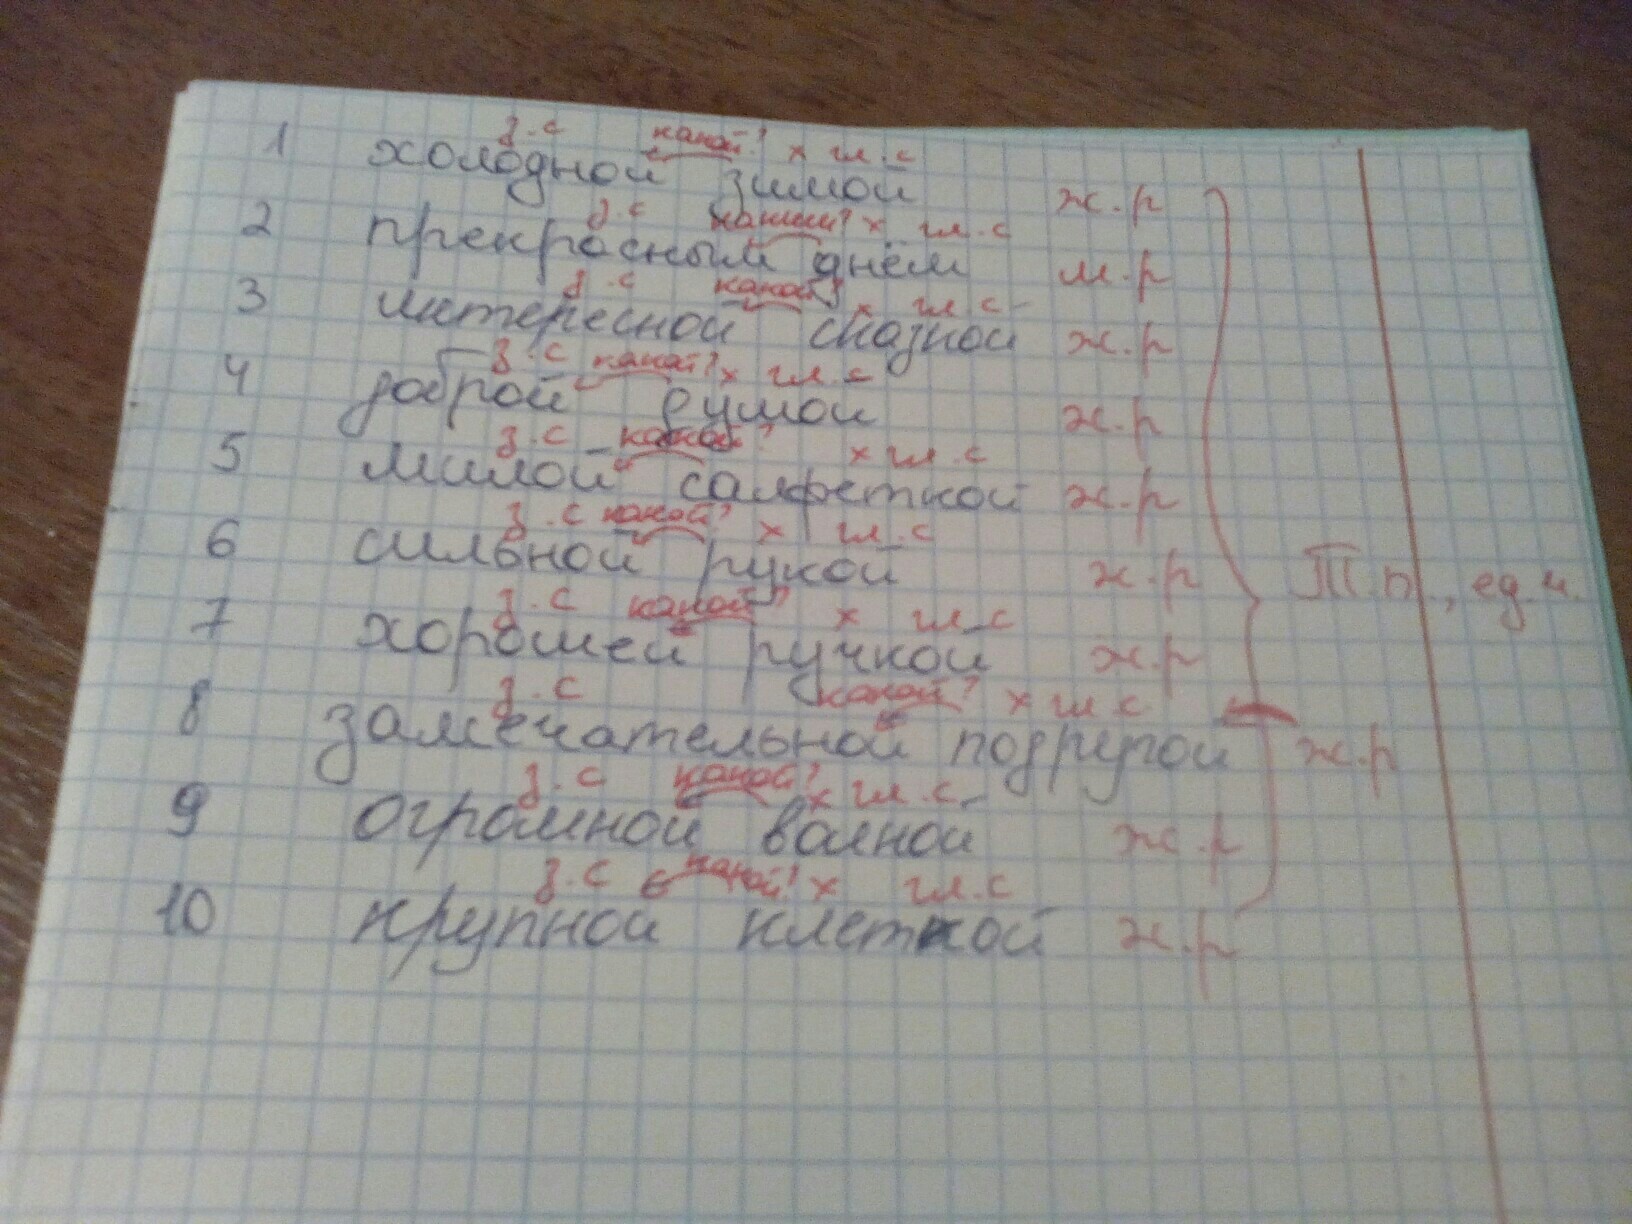 з.с какой? х гл.с
1 холодной зимой ж.р
з.с каким? х гл.с
2 прекрасным днём м.р
з.с какой? х гл.с
3 интересной сказкой ж.р
з.с какой? х гл.с
4 доброй душой ж.р
з.с какой? х гл.с
5 милой салфеткой ж.р
з.с какой? х гл.с
6 сильной рукой ж.р Т.п., ед.ч.
з.с какой? х гл.с
7 хорошей ручкой ж.р
з.с какой? х гл.с
8 замечательной подругой ж.р
з.с какой? х гл.с
9 огромной волной ж.р
з.с какой? х гл.с
10 крупной клеткой ж.р